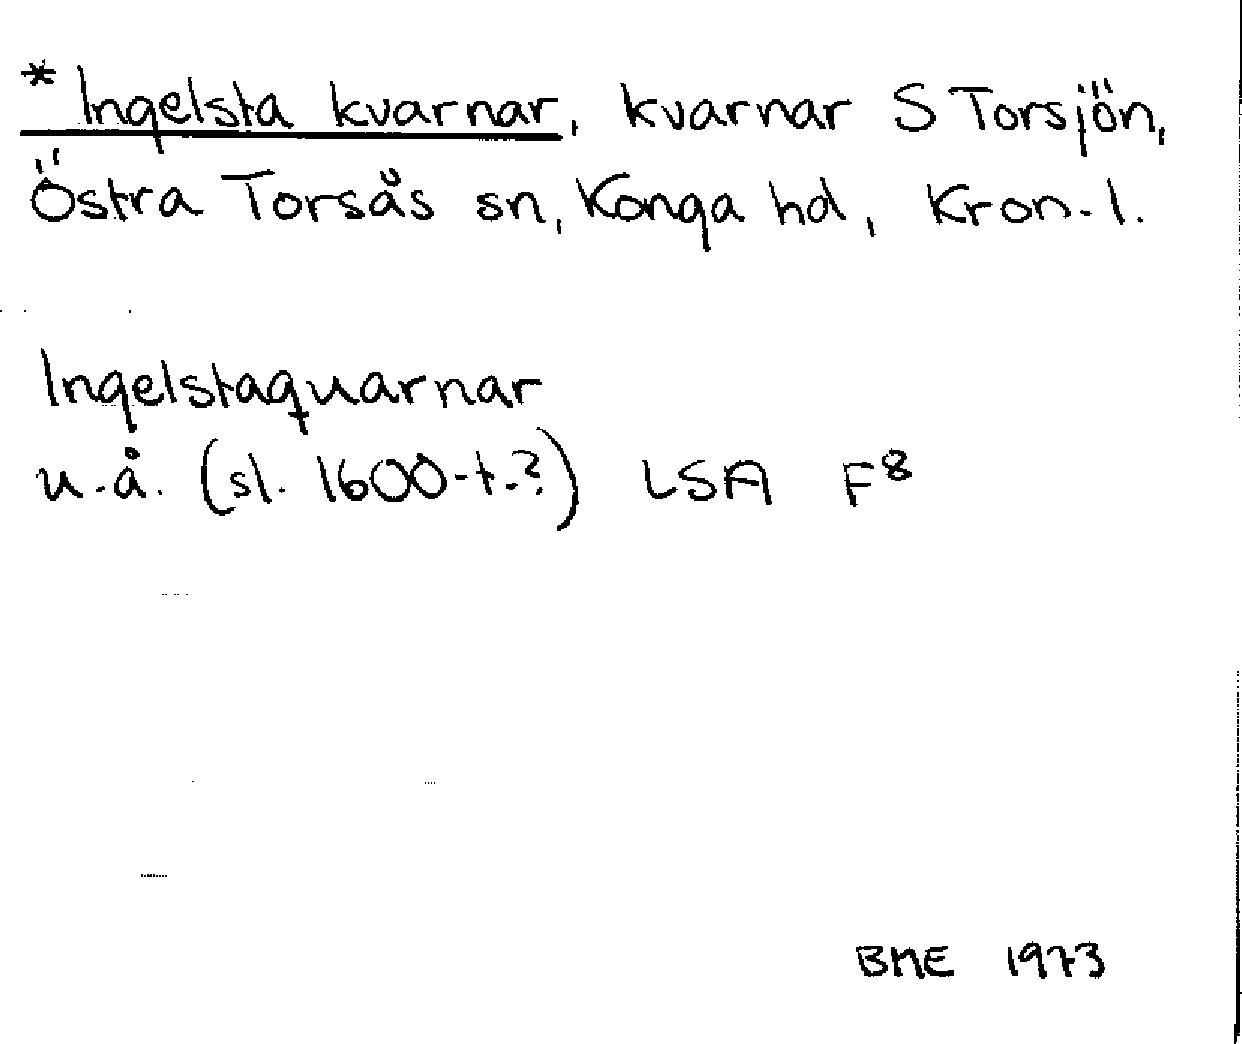 * Ingelsta kvarnar, kvarnar S Torsjön,
Östra Torsås sn, Konga hd, Kron. l.
Ingelstaquarnar
u.å. (sl. 1600-t.?) LSA F⁸
BME 1973